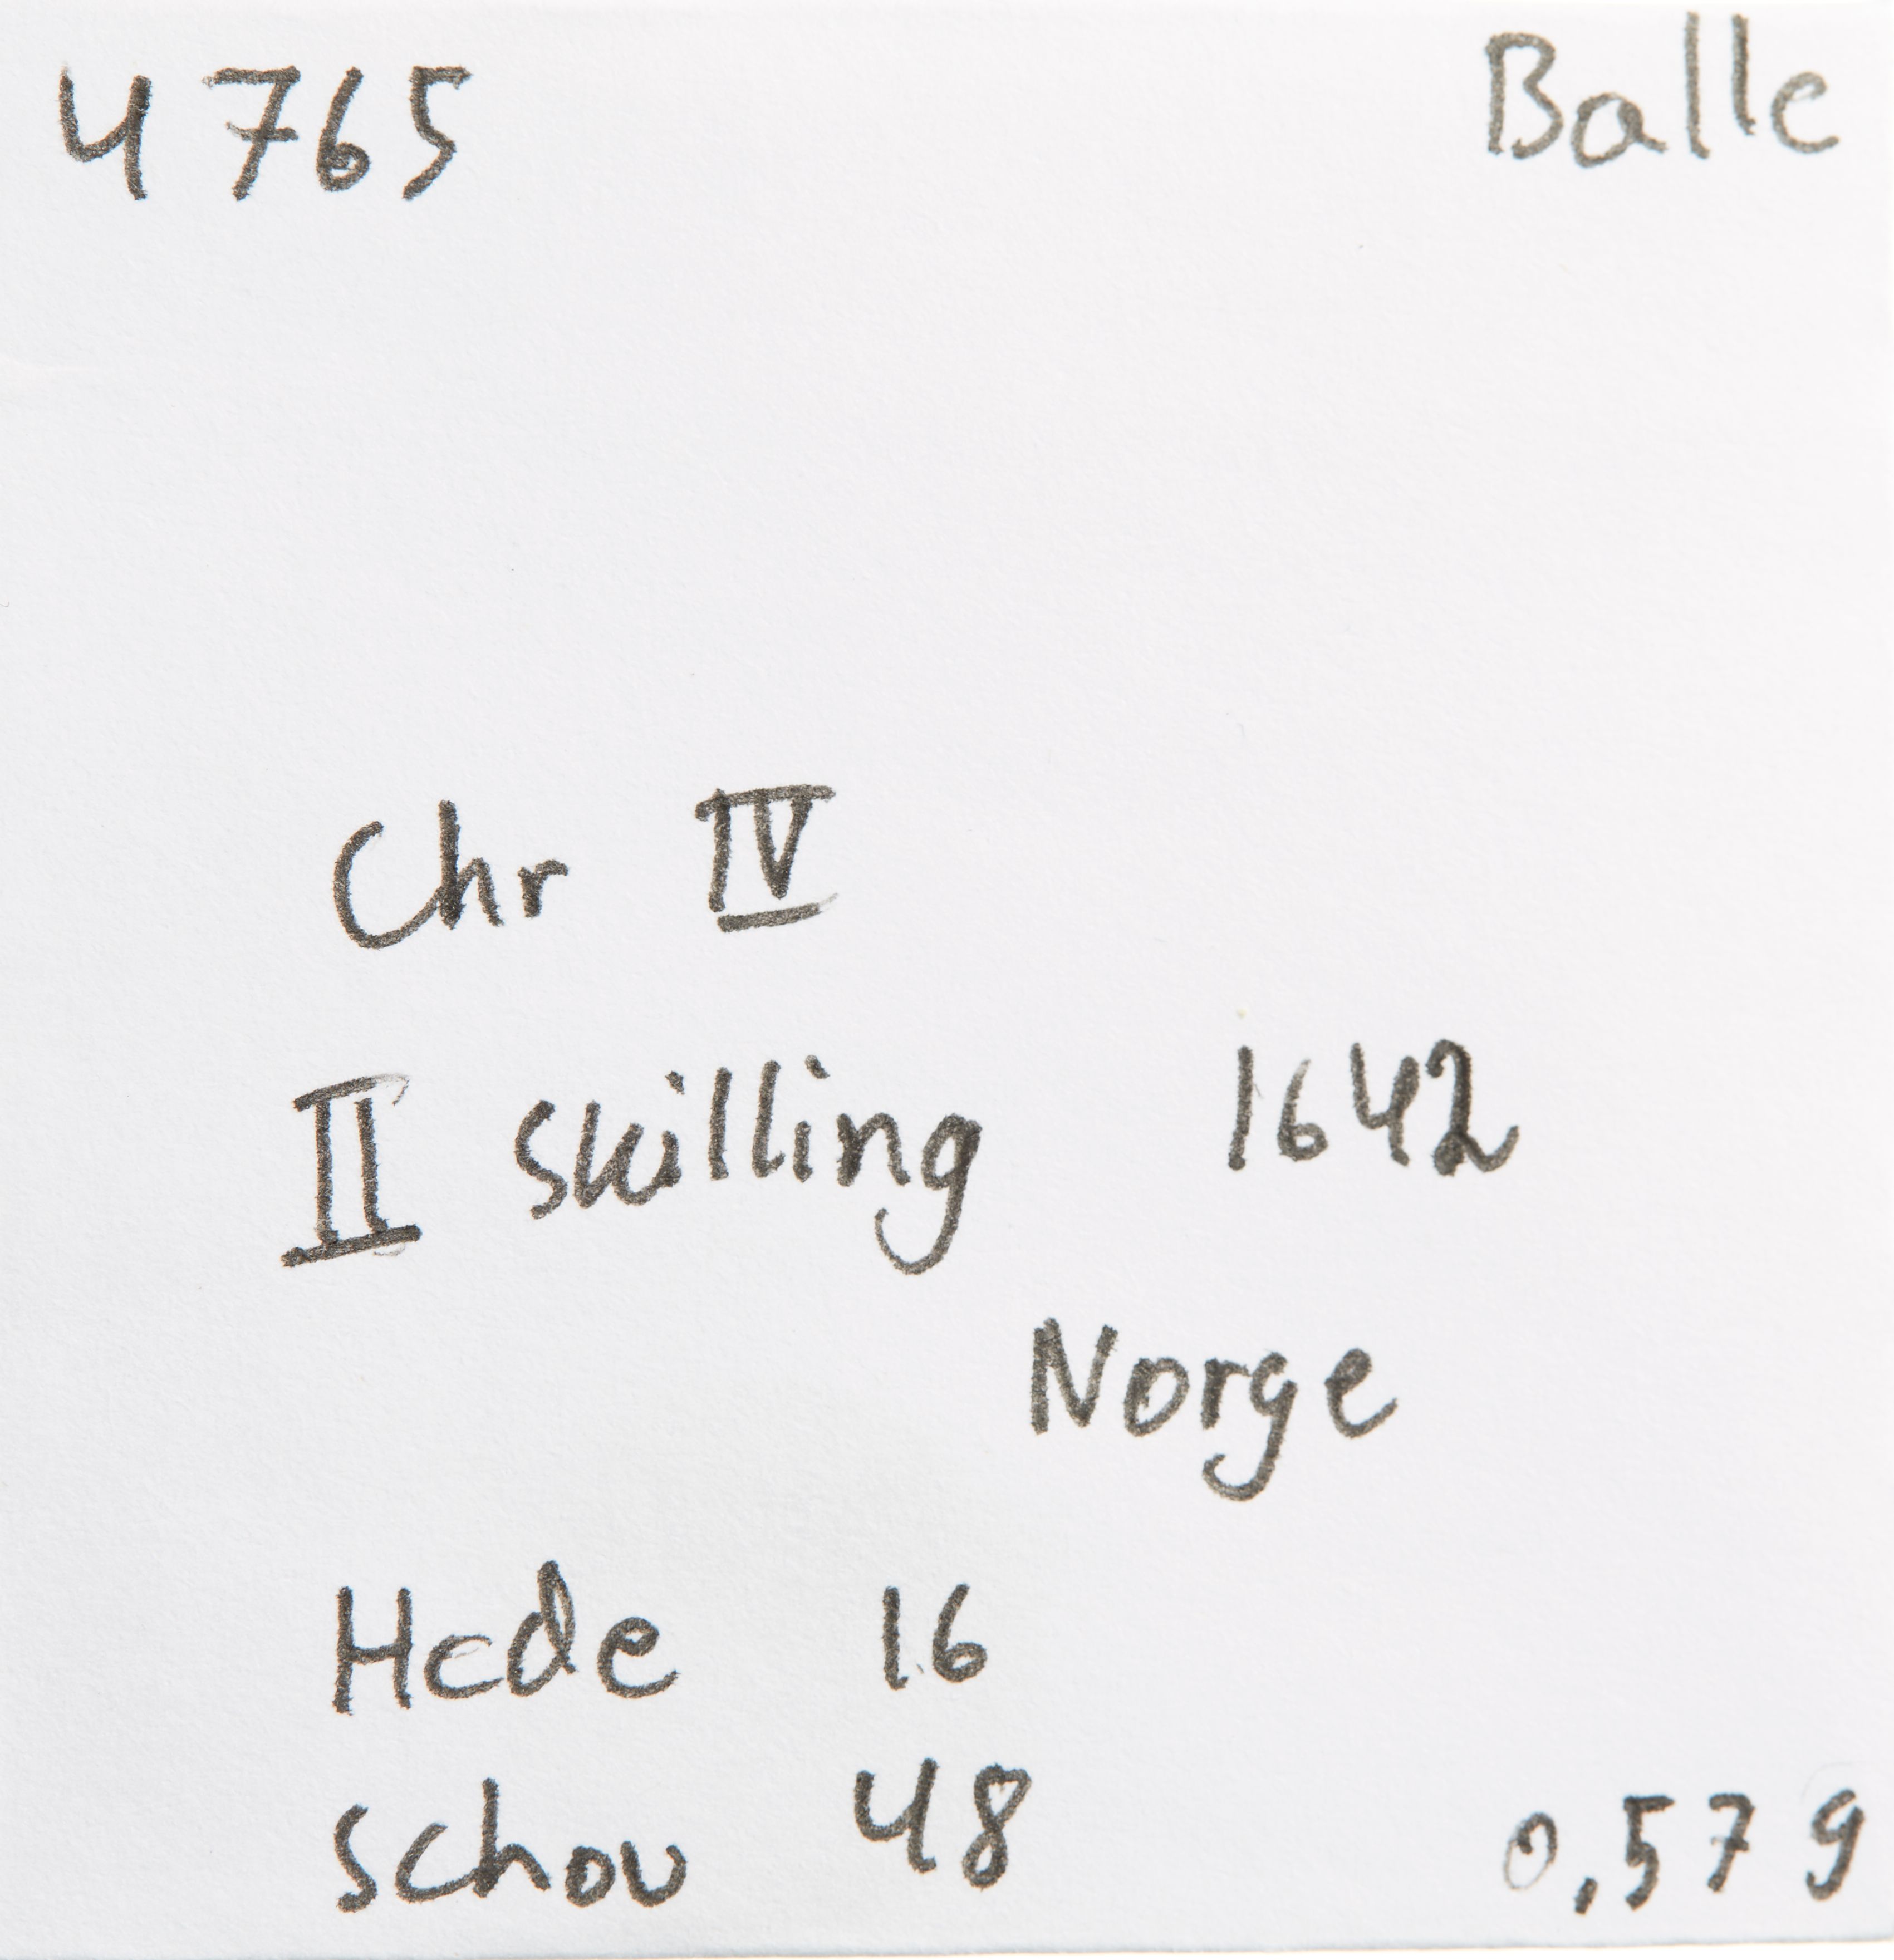 4765 Balle
Chr IV
II Skilling 1642
Norge
Hede 16
Schou 48
0,57 g